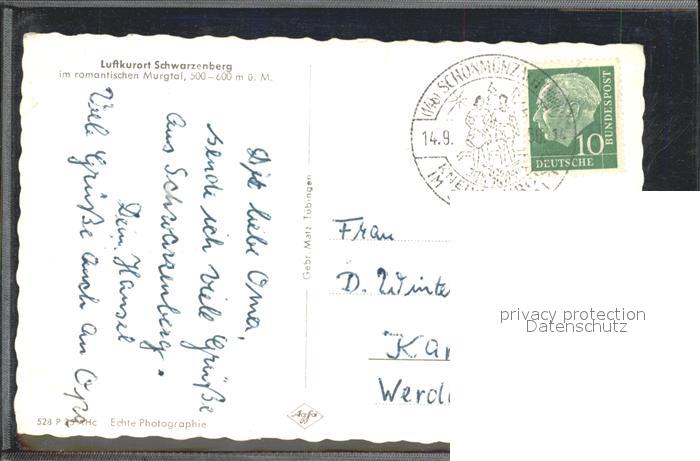 Luftkurort Schwarzenberg
im romantischen Murgtal, 500-600 m ü. M.
liebe Oma,
sende ich viele Grüße
aus Schwarzenberg.
Dein Hansel
Viele Grüße auch an Opa
528 P
Echte Photographie
Gebr. Metz Tübingen
Agfa
SCHÖNMÜNZ
14.9.
10
DEUTSCHE
BUNDESPOST
Frau
D. Winte
Ka
Werd
privacy protection
Datenschutz